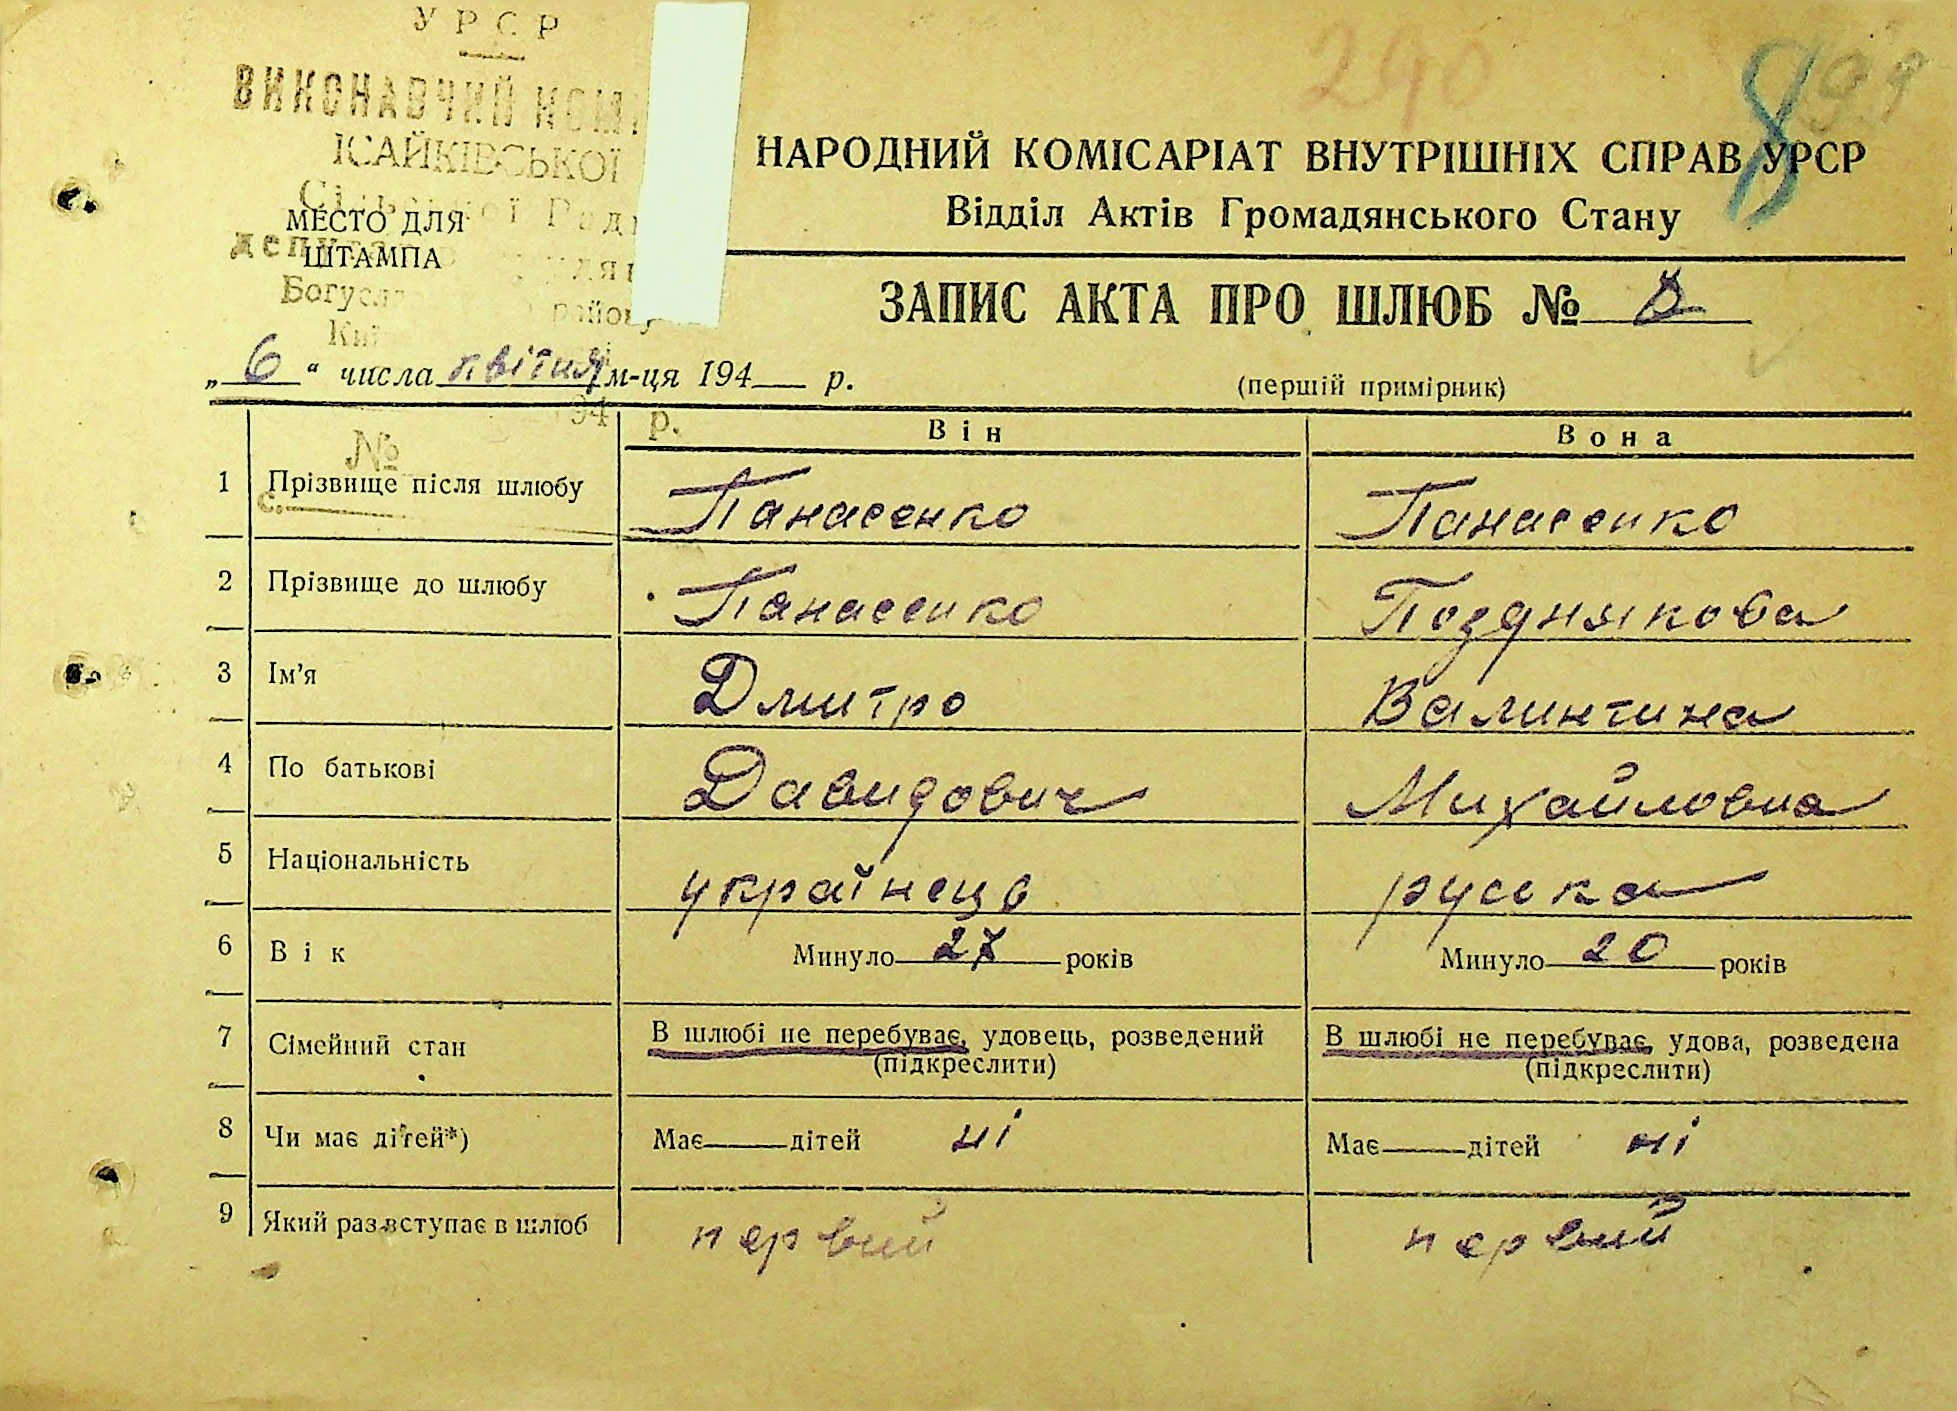 УРСР
ВИКОНАВЧИЙ
ІСАЙКІВСЬКОЇ
МЕСТО ДЛЯ
ШТАМПА
290
8 99
НАРОДНИЙ КОМІСАРІАТ ВНУТРІШНІХ СПРАВ УРСР
Відділ Актів Громадянського Стану
ЗАПИС АКТА ПРО ШЛЮБ № 8
„ 6 “ числа квітня м-ця 194 р.
(першій примірник)
194 р.
№
с.
Він Вона
1 Прізвище після шлюбу Панасенко Панасенко
2 Прізвище до шлюбу Панасенко Позднякова
3 Ім'я Дмитро Валинтина
4 По батькові Давидович Михайловна
5 Національність українець руска
6 Вік Минуло 27 років Минуло 20 років
7 Сімейний стан В шлюбі не перебуває, удовець, розведений В шлюбі не перебуває, удова, розведена
(підкреслити) (підкреслити)
8 Чи має дітей*) Має дітей ні Має дітей ні
9 Який раз вступає в шлюб первий первий